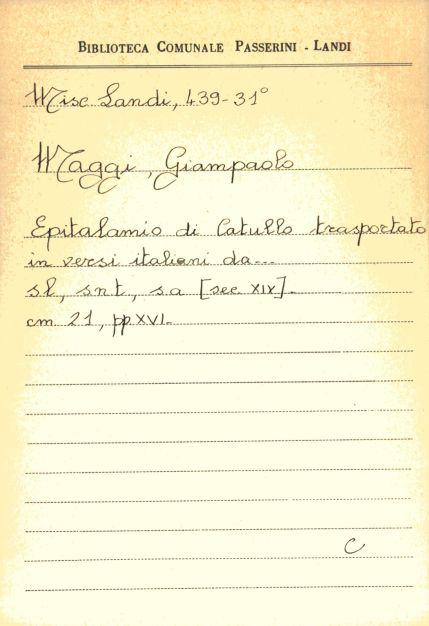 BIBLIOTECA COMUNALE PASSERINI - LANDI
Misc. Landi, 439-31°
Maggi, Giampaolo
Epitalamio di Catullo trasportato
in versi italiani da...
sl, snt, sa [sec. XIX].
cm. 21, pp. XVI.
C